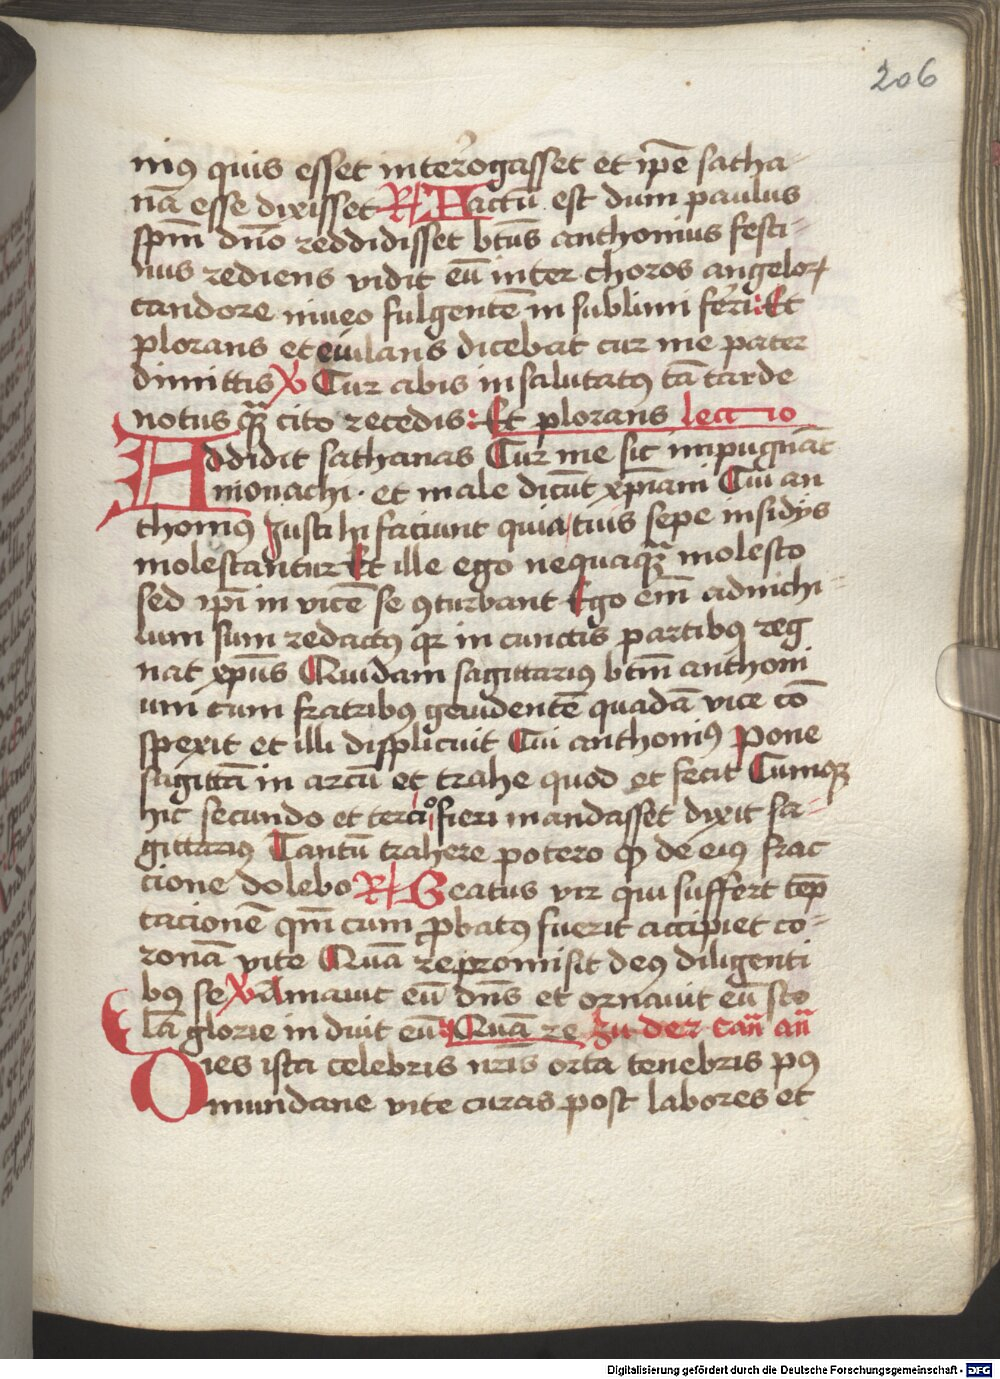 206
niꝯ quis esset interrogasset et ip̄e satha-
nā esse dixisset R Factū est dum paulus
sp̄m dn̄o reddidisset btūs anthonius festi-
nus rediens vidit eū inter choros angeloꝝ
candore niueo fulgentē in sublimi ferri Et
plorans et eiulans dicebat cur me pater
dimittis V Cur abis insalutatꝯ tā tarde
notus qͣꝫ cito recedis Et plorans lectio
Addidit sathanas Cur me sic impugnāt
monachi · et male dicūt xp̄iani Cui an
thoniꝯ Justi hi faciunt quia tuis sepe insidijs
molestantur Et ille ego nequaqͣꝫ molesto
sed ip̄i in vicē se ꝯturbant Ego em̄ ad nichi-
lum sum redactꝯ qꝛ in cunctis partibꝯ reg
nat xp̄us Quidam sagittariꝯ btm̄ anthoni
um cum fratribꝯ gaudentē quadā vice cō
spexit et illi displicuit Cui anthoniꝯ Pone
sagittā in arcū et trahe quod et fecit Cumqꝫ
hic secundo et tercio fieri mandasset dixit sa-
gittariꝯ Tantū trahere potero ꝙ de eiꝯ frac
cione dolebo R Beatus vir qui suffert tēp
tacionē qm̄ cum ꝓbatꝯ fuerit accipiet co-
ronā vite Quā repromisit deꝯ diligenti
bꝯ se V Amauit eū dn̄s et ornauit eū sto
lā glorie induit eū Quā re Zu der can̄ an̄
Dies ista celebris nr̄is orta tenebris pꝯ
mundane vite curas post labores et
Digitalisierung gefördert durch die Deutsche Forschungsgemeinschaft - DFG